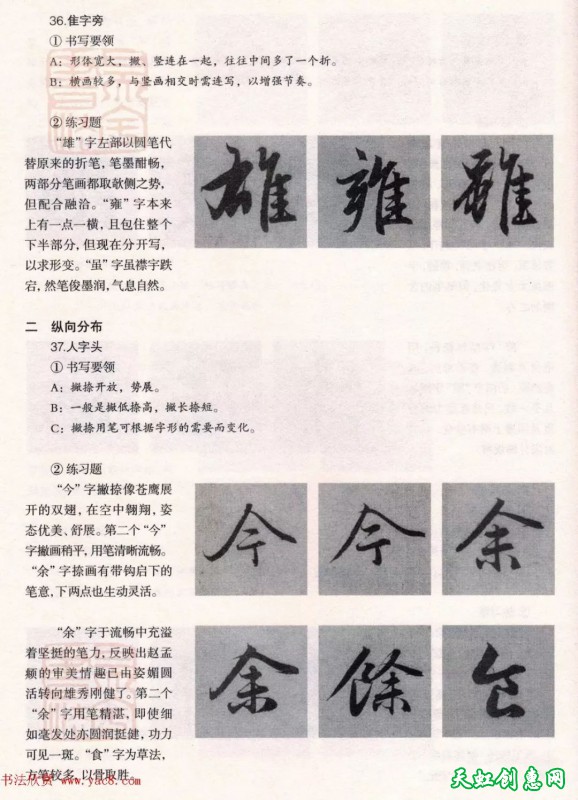 36.隹字旁
①书写要领
A：形体宽大，撇、竖连在一起，往往中间多了一个折。
B：横画较多，与竖画相交时需连写，以增强节奏。
②练习题
“雄”字左部以圆笔代
替原来的折笔，笔墨酣畅，
两部分笔画都取欹侧之势，
但配合融洽。“雍”字本来
上有一点一横，且包住整个
下半部分，但现在分开写，
以求形变。“虽”字虽襟宇跌
宕，然笔俊墨润，气息自然。
雄 雍 雖
二 纵向分布
37.人字头
①书写要领
A：撇捺开放，势展。
B：一般是撇低捺高，撇长捺短。
C：撇捺用笔可根据字形的需要而变化。
②练习题
“今”字撇捺像苍鹰展
开的双翅，在空中翱翔，姿
态优美、舒展。第二个“今”
字撇画稍平，用笔清晰流畅。
“余”字捺画有带钩启下的
笔意，下两点也生动灵活。
今 今 余
“余”字于流畅中充溢
着坚挺的笔力，反映出赵孟
頫的审美情趣已由姿媚圆
活转向雄秀刚健了。第二个
“余”字用笔精湛，即使细
如毫发处亦圆润挺健，功力
可见一斑。“食”字为草法，
方笔较多，以骨取胜。
余 餘 食
书法欣赏 www.yac8.com
天虹创惠网